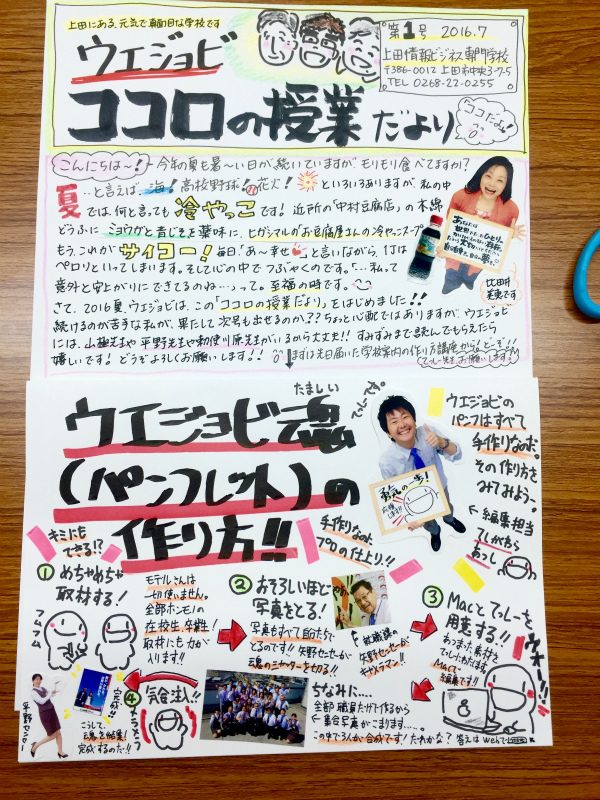 上田にある、元気で真面目な学校です
ウエジョビ
ココロの授業だより
第1号 2016.7
上田情報ビネス専門学校
〒386-0012 上田市中央3-7-5
TEL 0268-22-0255
ココだよ!
こんにちは〜! 今年の夏も暑〜い日が続いていますが、モリモリ食べてますか?
夏…と言えば、海!高校野球!花火! といろいろありますが、私の中
では、何と言っても冷やっこです!近所の「中村豆腐店」の木綿
どうふにミョウガと青じそを薬味に、ヒガシマルの「お豆腐屋さんの冷やっこスープ」
もう、これがサイコー!毎日「あ〜幸せ」と言いながら、1丁は
ペロリといってしまいます。そして心の中でつぶやくのです。「…私って
意外と安上がりにできてるのね…」って。至福の時です。
さて、2016夏、ウエジョビは、この「ココロの授業だより」をはじめました!!
続けるのが苦手な私が、果たして次号も出せるのか??ちょっと心配ではありますが、ウエジョビ
には、山極先生や平野先生や勅使川原先生がいるから大丈夫!!すみずみまで読んでもらえたら
嬉しいです!どうぞよろしくお願いします!!
まずは先日届いた学校案内の作り方講座から。どーぞ!!
比田井
美恵です
たましい
ウエジョビ魂
(パンフレット)の
作り方!!
てっしーです。
勇気の一歩!
ウエジョビの
パンフはすべて
手作りなのだ。
その作り方を
みてみよう。
←編集担当
てしがわら
あっし
キミにも
できる!?
手作りなのに
プロの仕上り!!
① めちゃめちゃ
取材する!
フムフム
モデルさんは
一切使いません。
全部ホンモノの
在校生、卒業生!
取材にも力が
入ります!!
② おそろしいほど
写真をとる!
写真もすべて自分たちで
とるのです!!矢野センセーが
魂のシャッターを切る!!
就職課の
矢野センセーが
キャメラマン!
③ Macとてっしーを
用意する!!
あつまった素材を
てっしーがひたすら
Macで
編集です!
ウォー!!
④ 気合注入!!
完成!!
こうして
魂を結集!
完成するのだ!!
平野センセー
ちなみに….
全部職員だけで作るから
←集合写真がこまります…..
この中で3人が合成です!だれかな?答えはwebで